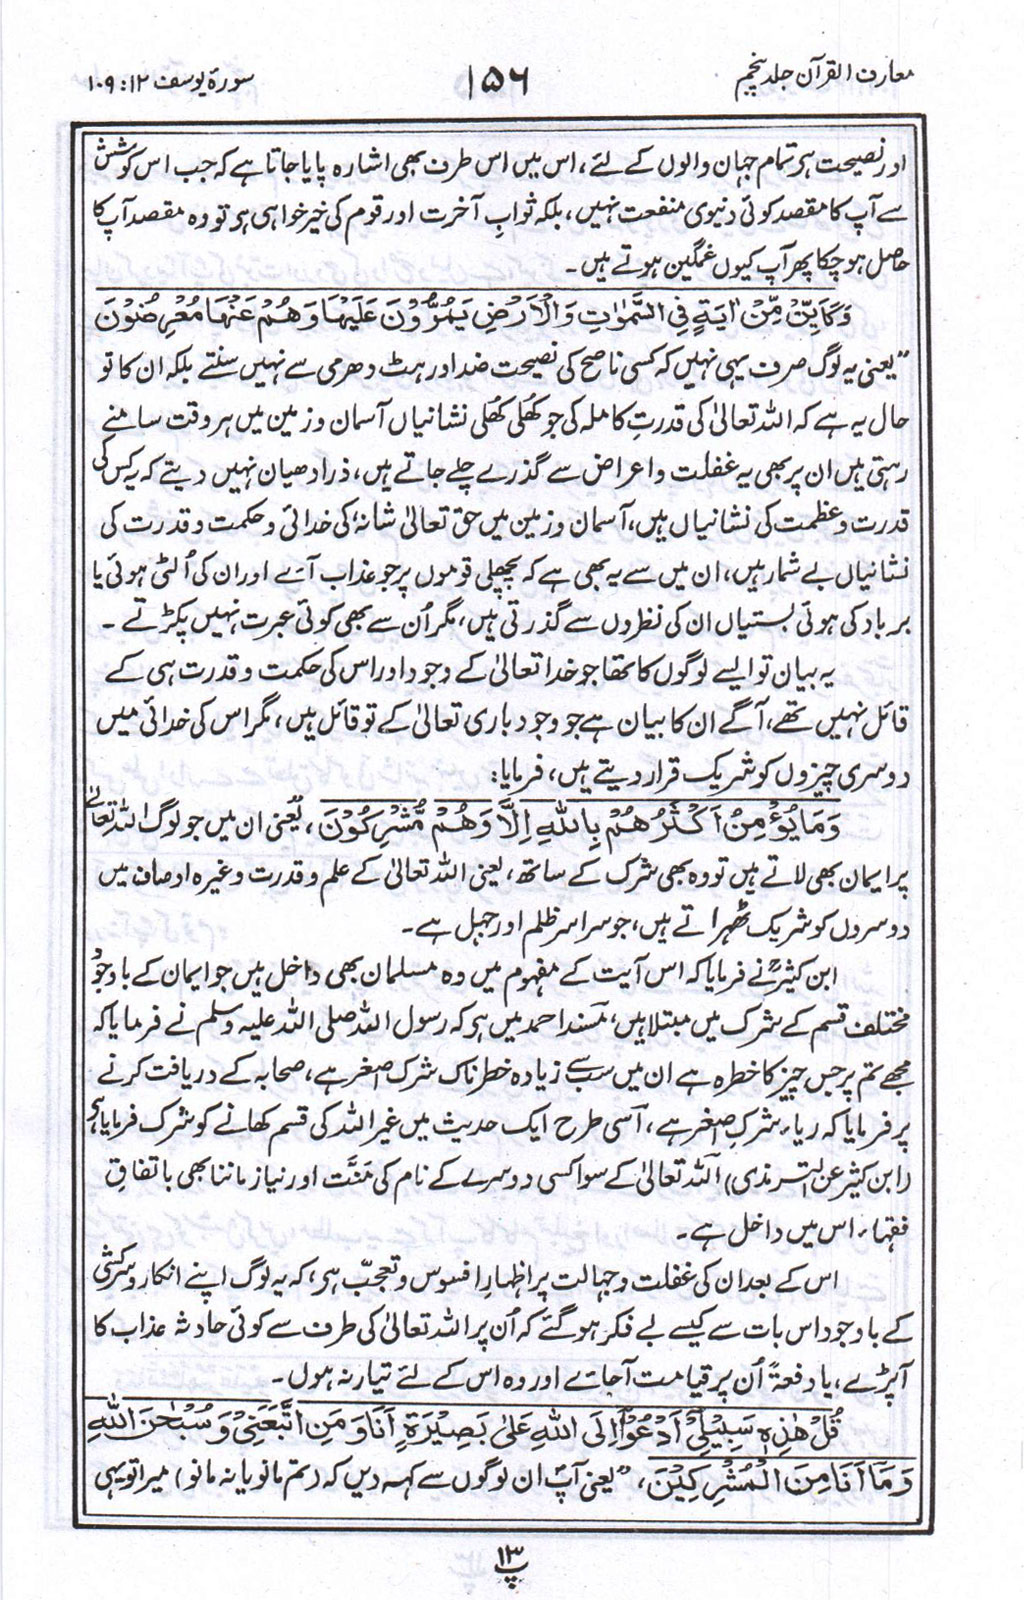 معارف القرآن جلد پنجم
۱۵۶
سورۂ یوسف ۱۲ : ۱۰۹
اور نصیحت ہی تمام جہان والوں کے لئے، اس میں اس طرف بھی اشارہ پایا جاتا ہے کہ جب اس کوشش
سے آپ کا مقصد کوئی دنیوی منفعت نہیں، بلکہ ثوابِ آخرت اور قوم کی خیر خواہی ہی تو وہ مقصد آپ کا
حاصل ہو چکا پھر آپ کیوں غمگین ہوتے ہیں۔
وَكَاَيِّنْ مِّنْ اٰيَةٍ فِي السَّمٰوٰتِ وَالْاَرْضِ يَمُرُّوْنَ عَلَيْهَا وَهُمْ عَنْهَا مُعْرِضُوْنَ
”یعنی یہ لوگ صرف یہی نہیں کہ کسی ناصح کی نصیحت ضد اور ہٹ دھرمی سے نہیں سنتے بلکہ ان کا تو
حال یہ ہے کہ اللہ تعالیٰ کی قدرتِ کاملہ کی جو کھُلی کھُلی نشانیاں آسمان و زمین میں ہر وقت سامنے
رہتی ہیں ان پر بھی یہ غفلت و اعراض سے گذرے چلے جاتے ہیں، ذرا دھیان نہیں دیتے کہ یہ کس کی
قدرت و عظمت کی نشانیاں ہیں، آسمان و زمین میں حق تعالیٰ شانہٗ کی خدائی و حکمت و قدرت کی
نشانیاں بے شمار ہیں، ان میں سے یہ بھی ہے کہ پچھلی قوموں پر جو عذاب آئے اور ان کی اُلٹی ہوئی یا
برباد کی ہوئی بستیاں ان کی نظروں سے گذرتی ہیں، مگر اُن سے بھی کوئی عبرت نہیں پکڑتے ۔
یہ بیان تو ایسے لوگوں کا تھا جو خدا تعالیٰ کے وجود اور اس کی حکمت و قدرت ہی کے
قائل نہیں تھے، آگے ان کا بیان ہے جو وجود باری تعالیٰ کے تو قائل ہیں، مگر اس کی خدائی میں
دوسری چیزوں کو شریک قرار دیتے ہیں، فرمایا:
وَمَا يُؤْمِنُ اَكْثَرُهُمْ بِاللّٰهِ اِلَّا وَهُمْ مُّشْرِكُوْنَ، یعنی ان میں جو لوگ اللہ تعالیٰ
پر ایمان بھی لاتے ہیں تو وہ بھی شرک کے ساتھ، یعنی اللہ تعالیٰ کے علم و قدرت وغیرہ اوصاف میں
دوسروں کو شریک ٹھہراتے ہیں، جو سراسر ظلم اور جہل ہے۔
ابن کثیرؒ نے فرمایا کہ اس آیت کے مفہوم میں وہ مسلمان بھی داخل ہیں جو ایمان کے باوجود
مختلف قسم کے شرک میں مبتلا ہیں، مسند احمد میں ہی کہ رسول اللہ صلی اللہ علیہ وسلم نے فرمایا کہ
مجھے تم پر جس چیز کا خطرہ ہے ان میں سب سے زیادہ خطرناک شرک اصغر ہے، صحابہ کے دریافت کرنے
پر فرمایا کہ ریاء شرکِ اصغر ہے، اسی طرح ایک حدیث میں غیر اللہ کی قسم کھانے کو شرک فرمایا ہی
(ابن کثیر عن الترمذی) اللہ تعالیٰ کے سوا کسی دوسرے کے نام کی منّت اور نیاز ماننا بھی باتفاقِ
فقہاء اس میں داخل ہے۔
اس کے بعد ان کی غفلت و جہالت پر اظہارِ افسوس و تعجّب ہی، کہ یہ لوگ اپنے انکار و سرکشی
کے باوجود اس بات سے کیسے بے فکر ہو گئے کہ اُن پر اللہ تعالیٰ کی طرف سے کوئی حادثہ عذاب کا
آپڑے، یا دفعۃً اُن پر قیامت آجائے اور وہ اس کے لئے تیار نہ ہوں۔
قُلْ هٰذِهٖ سَبِيْلِيْٓ اَدْعُوْٓا اِلَى اللّٰهِ عَلٰى بَصِيْرَةٍ اَنَا وَمَنِ اتَّبَعَنِيْ وَسُبْحٰنَ اللّٰهِ
وَمَآ اَنَا مِنَ الْمُشْرِكِيْنَ، ”یعنی آپؐ ان لوگوں سے کہہ دیں کہ (تم مانو یا نہ مانو) میرا تو یہی
پ ۱۳